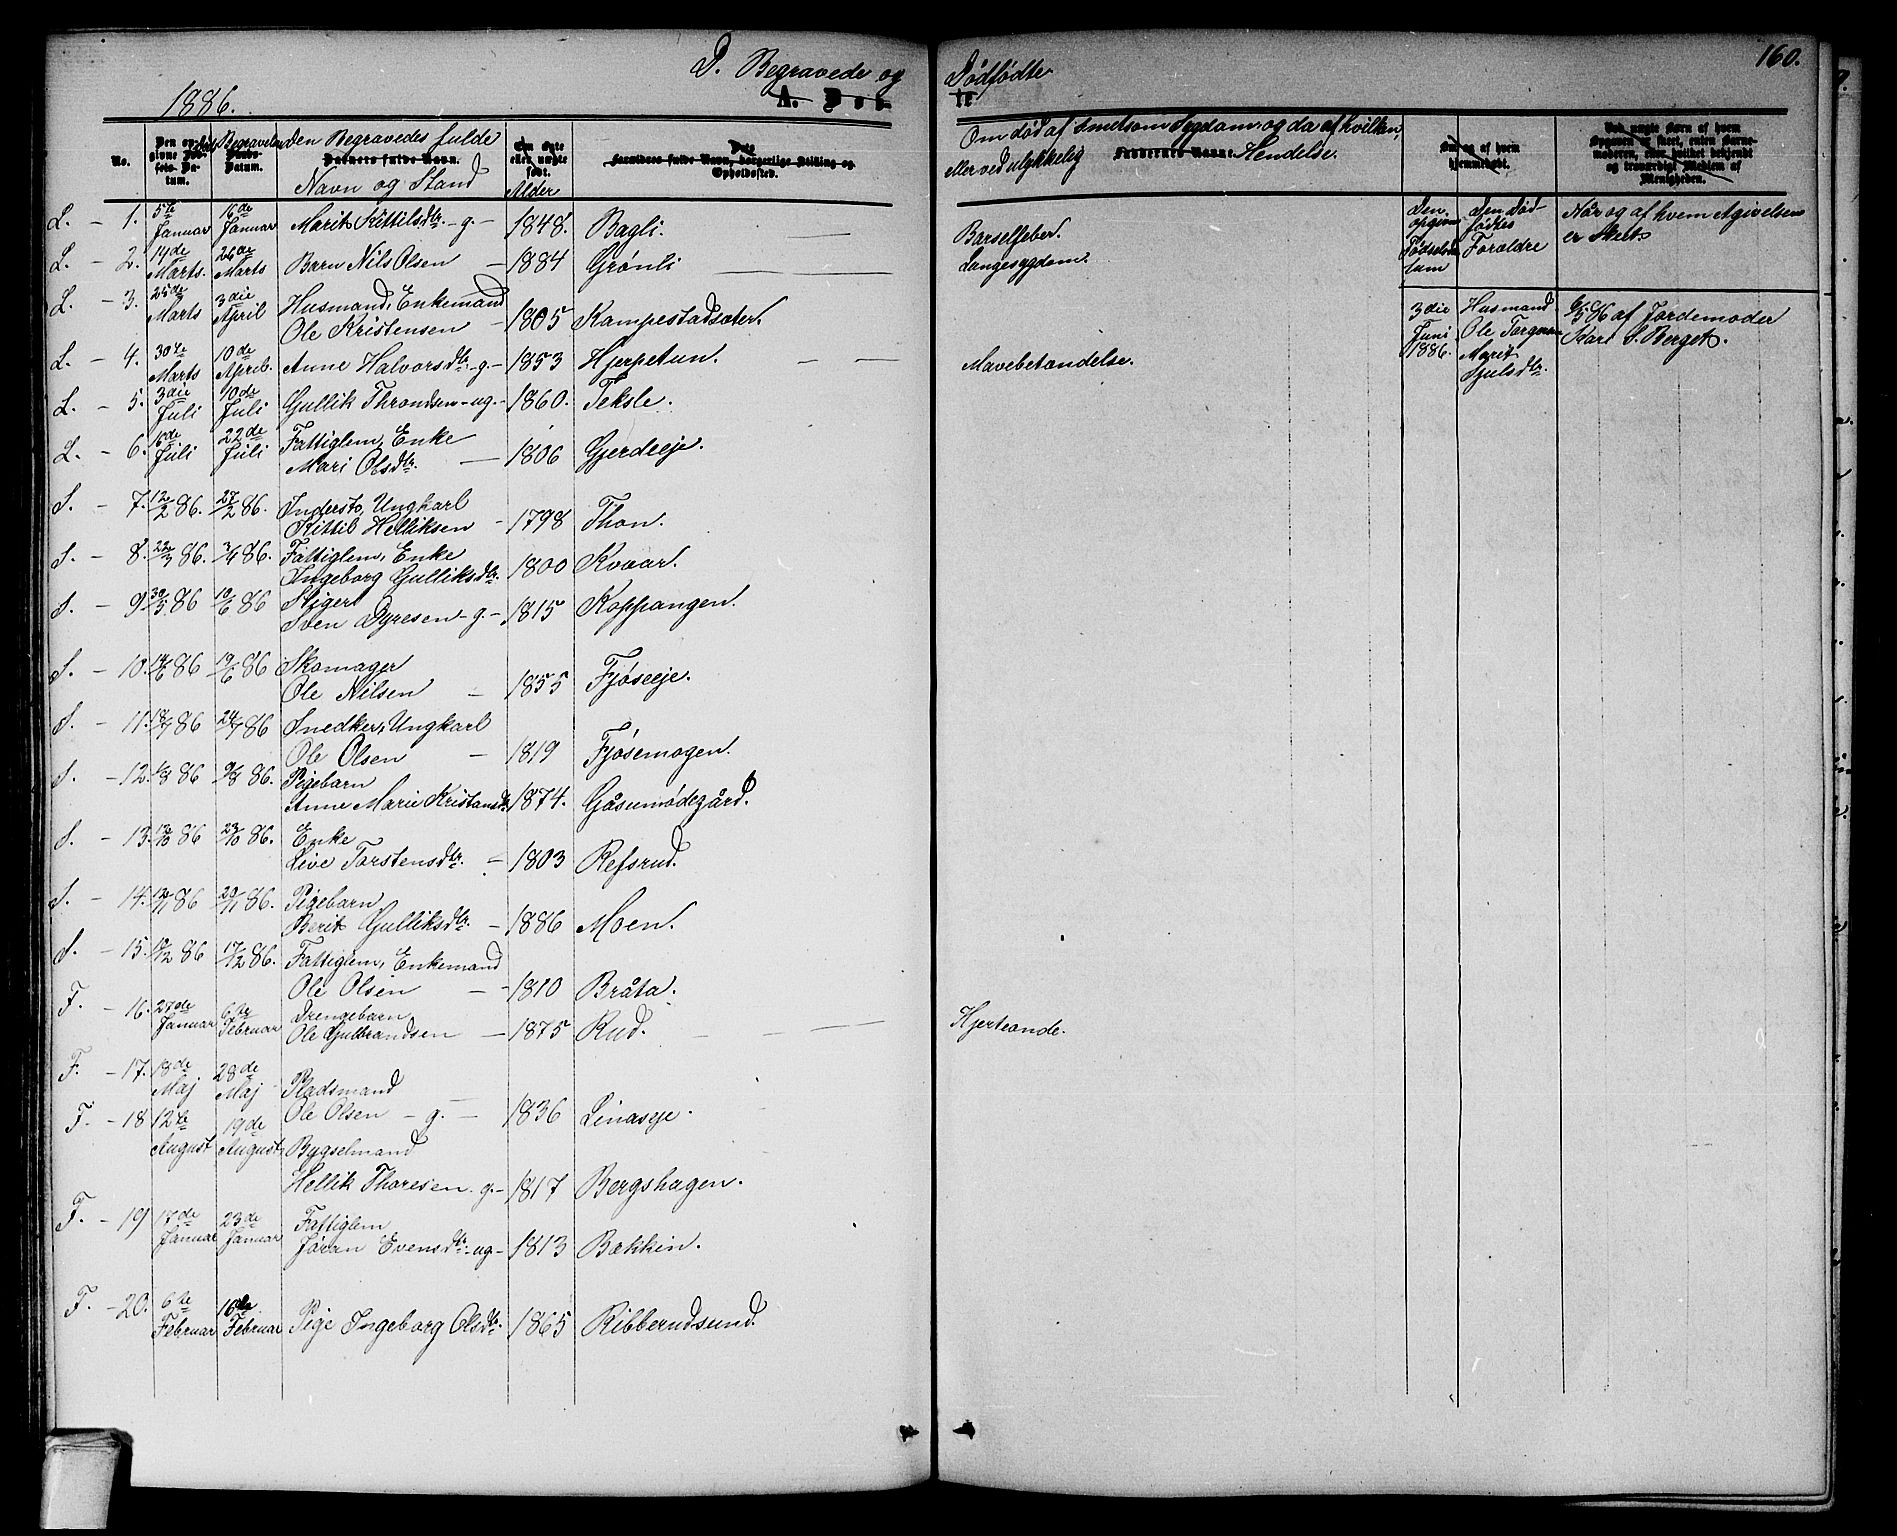 D. Begravede og Dødfødte
160.
1886.
A. Døb-
te
No.
Begravelses
Datum.
Den Begravedes fulde
Barnets fulde Navn.
Navn og Stand
Om ægte
eller uægte
født.
Alder
Opholdssted.
Om død af Smitsom Sygdom og da af hvilken,
eller ved ulykkelig Faddernes Navne. Hendelse.
hjemmedøbt.
Menigheden.
L. - 1. 5te Januar 16de Januar Marit Kittilsdtr. - g. - 1848. Bagli. Barselfeber.
L. - 2. 14de Marts. 26de Marts Barn Nils Olsen - 1884 Grønli Langesygdom.
L. - 3. 25de Marts 3die April Husmand, Enkemand
Ole Kristensen - 1805 Kampestadsæter.
L. - 4. 30te Marts 10de April. Anne Halvorsdtr. - g. - 1853 Hjerpetun. Mavebetændelse.
L. - 5. 3die Juli 10de Juli Gullik Throndsen - ug. - 1860. Teksle.
L. - 6. 22de Juli Fattiglem, Enke
Mari Olsdtr. - 1806 Gjerdeeje.
S. - 7. 12/2 86. 27/2 86. Inderst, Ungkarl
Kittil Helliksen - 1798 Thon.
S. - 8. 22/3 86. 3/4 86. Fattiglem, Enke
Ingeborg Gulliksdtr. 1800 Kvaar.
S. - 9 30/5 86 10/6 86
Sven Dyresen - g. - 1815 Koppangen.
S. - 10. 14/6 86 19/6 86 Skomager
Ole Nilsen - 1855 Fjøseeje.
S. - 11. 18/7 86 24/7 86 Snedker, Ungkarl
Ole Olsen - 1819 Fjøsemogen.
S. - 12. 86 9/8 86. Pigebarn
Anne Marie Kristansdtr. 1874. Gåsumødegård.
S. - 13. 12/10 86 23/10 86. Enke
Live Torstensdtr. - 1803 Refsrud.
S. - 14. 13/11 86 20/11 86. Pigebarn
Berit Gulliksdtr. - 1886 Moen.
S. - 15. 10/12 86 17/12 86. Fattiglem, Enkemand
Ole Olsen - 1810 Bråta.
F. - 16. 27de Januar 6te Februar Drengebarn
Ole Gulbrandsen - 1875 Rud. Hjerteonde.
F. - 17. 18de Maj 28de Maj Pladsmand
Ole Olsen - g. - 1836 Linaseje.
F. - 18 12te August 19de August Bygselmand
Hellik Thoresen - g. - 1817 Bergshagen.
F. - 19 17de Januar 23de Januar Fattiglem
Jøran Evensdtr. - ug - 1813 Bækkin.
F. - 20. 6te Februar 16de Februar Pige Ingeborg Olsdtr. 1865 Ribberudsund.
Den
opgivne
Fødselsda-
tum
Den Død
fødtes
Forældre
Når og af hvem Agivelsen
er skeet.
3die
Juni
1886.
Husmand
Ole
Marit
6/5 86 af Jordemoder
Kari S. Berget.